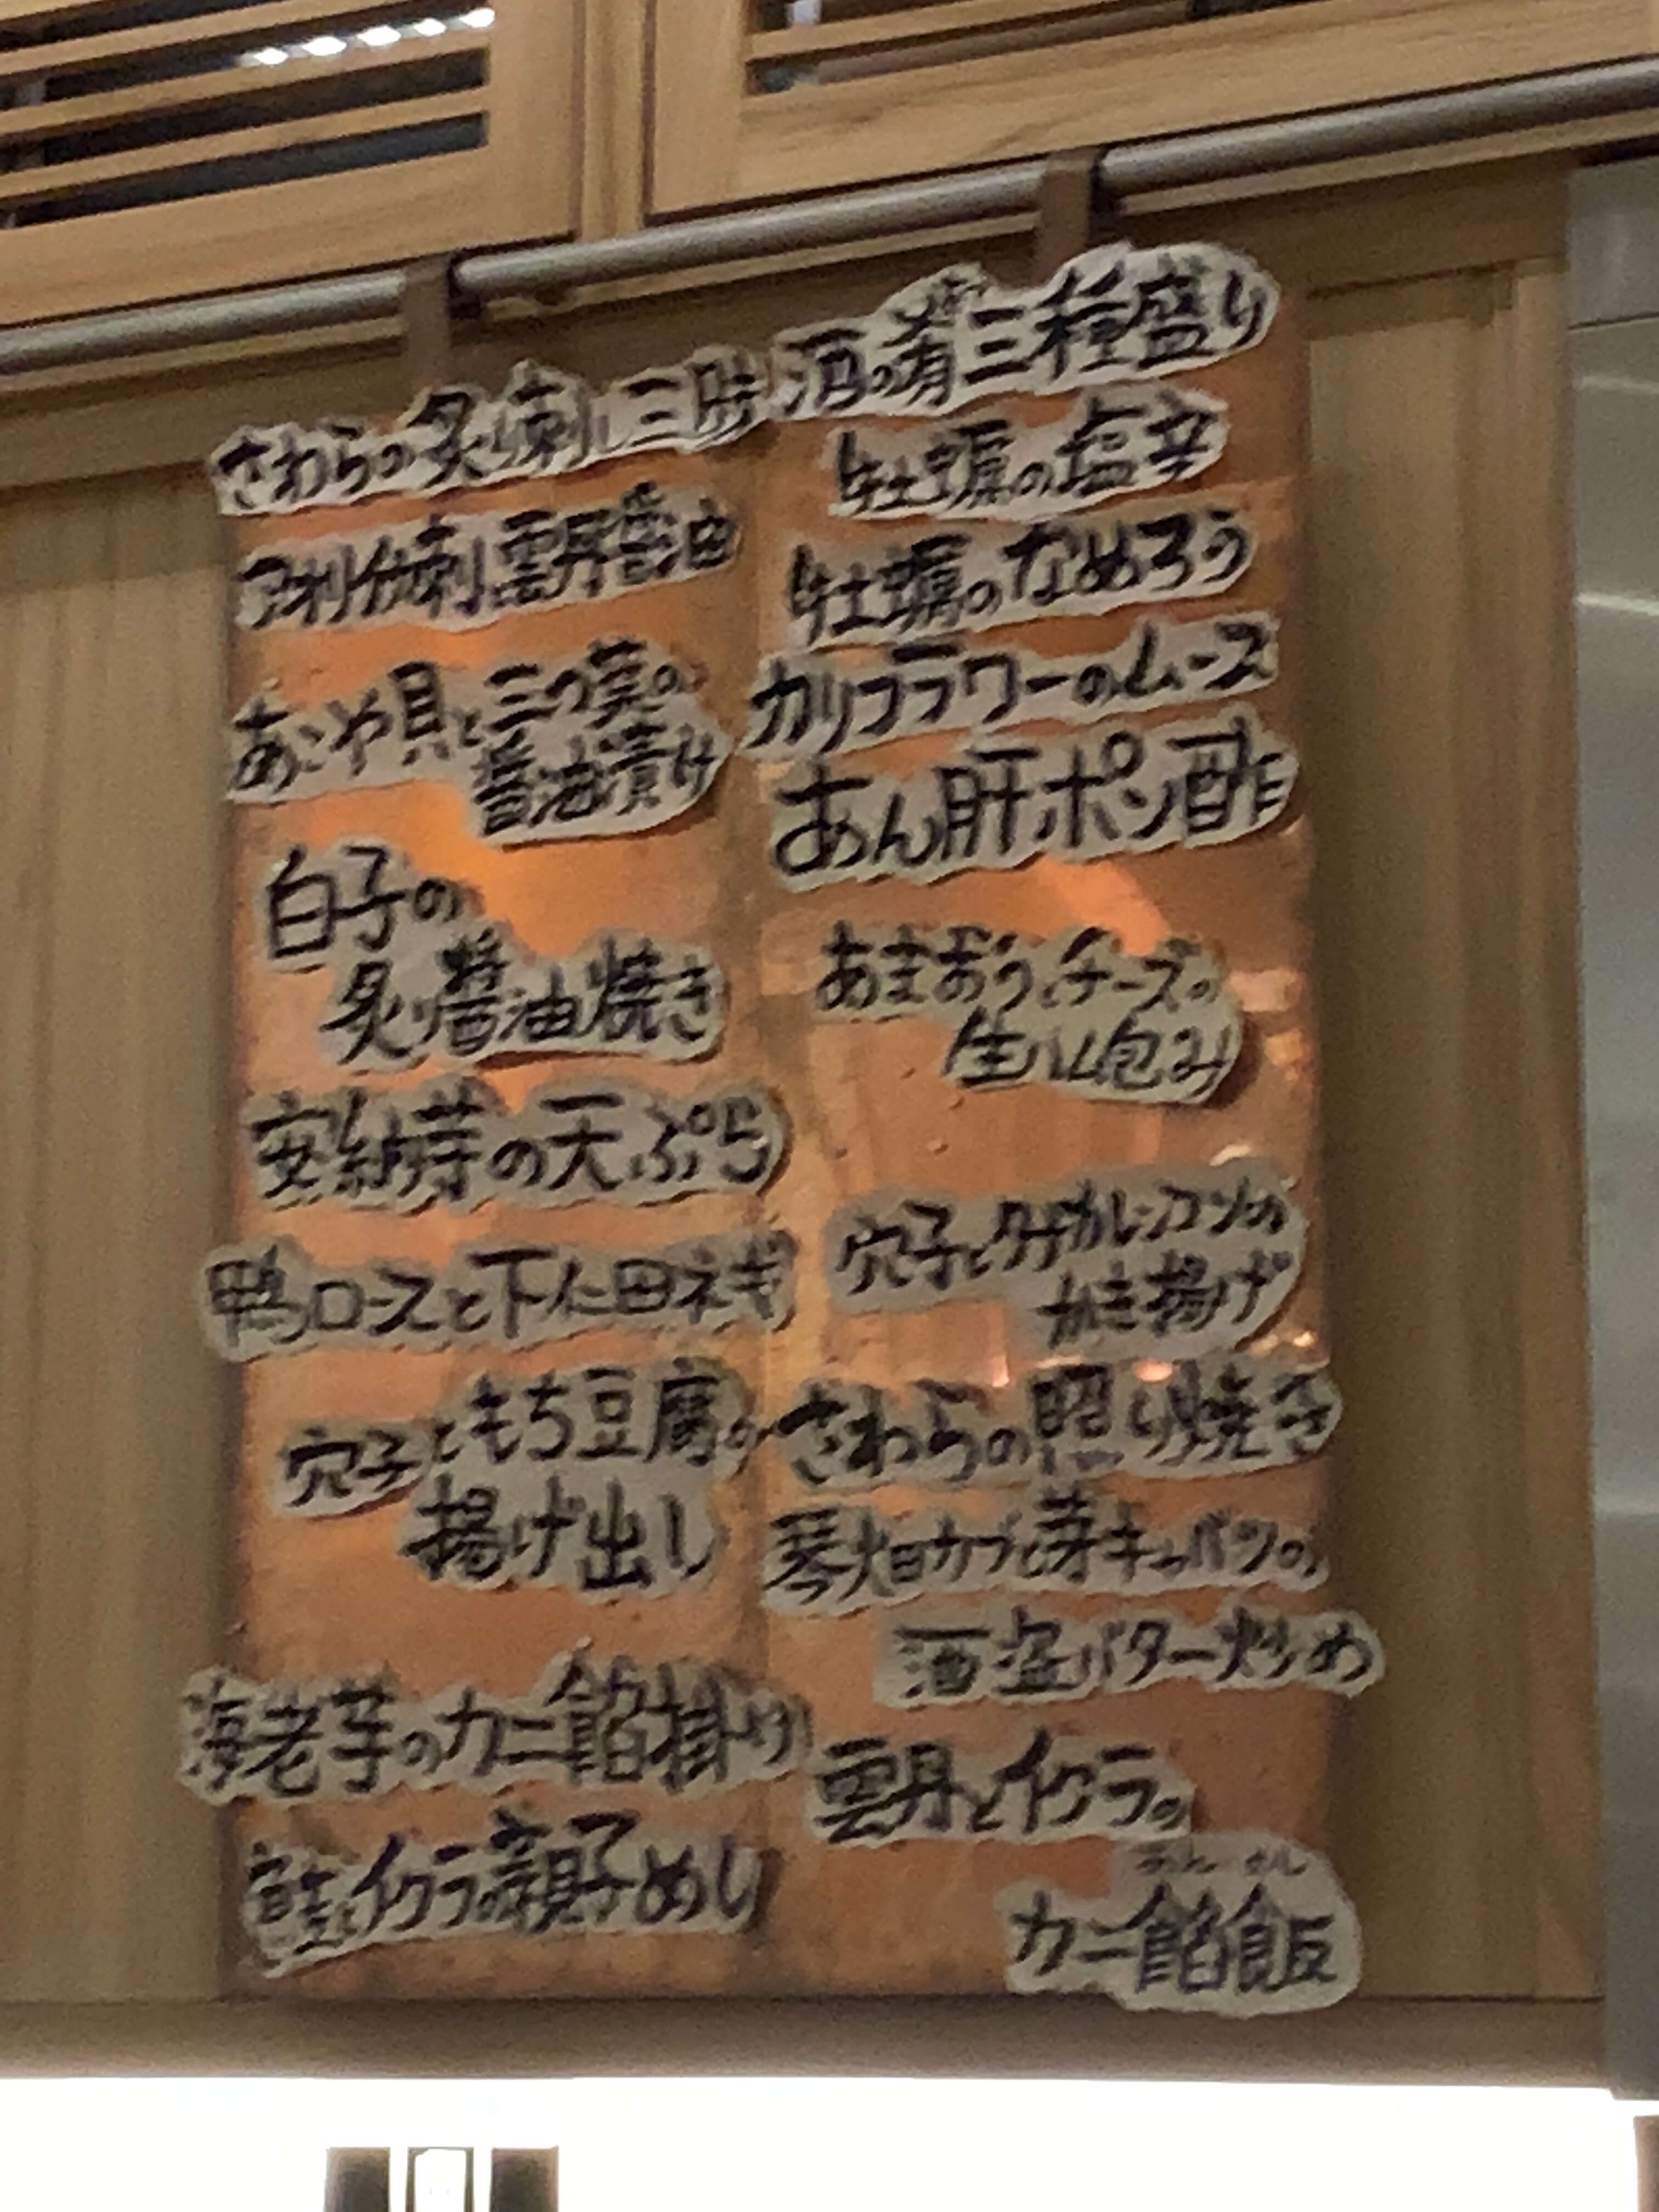 さわらの炙り刺し
アオリイカ刺し雲丹醤油
あこや貝と三つ葉の
醤油漬け
白子の
炙り醤油焼き
安納芋の天ぷら
鴨ロースと下仁田ネギ
穴子ともち豆腐の
揚げ出し
海老芋のカニ餡掛け
鮭とイクラの親子めし
酒の肴三種盛り
牡蠣の塩辛
牡蠣のなめろう
カリフラワーのムース
あん肝ポン酢
あまおうとチーズの
生ハム包み
穴子と レンコンの
かき揚げ
さわらの照り焼き
琴畑カブと芽キャベツの
酒盗バター炒め
雲丹とイクラの
あんめし
カニ餡飯